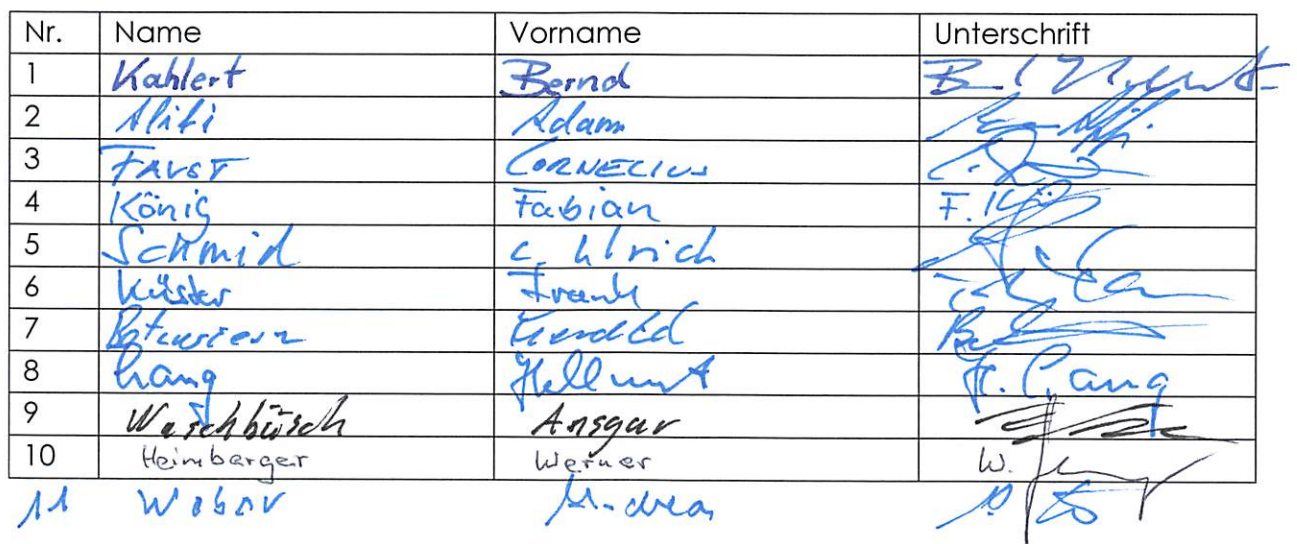 Nr. Name Vorname Unterschrift
1 Kahlert Bernd
2 Alifi Adam
3 FAUST CORNELIUS
4 König Fabian F. Kö
5 Schmid C. Ulrich
6 Küster Frank
7
8 Lang Hellmut H. Lang
9 Waschbüsch Ansgar
10 Heimberger Werner W.
11 Weber Andrea